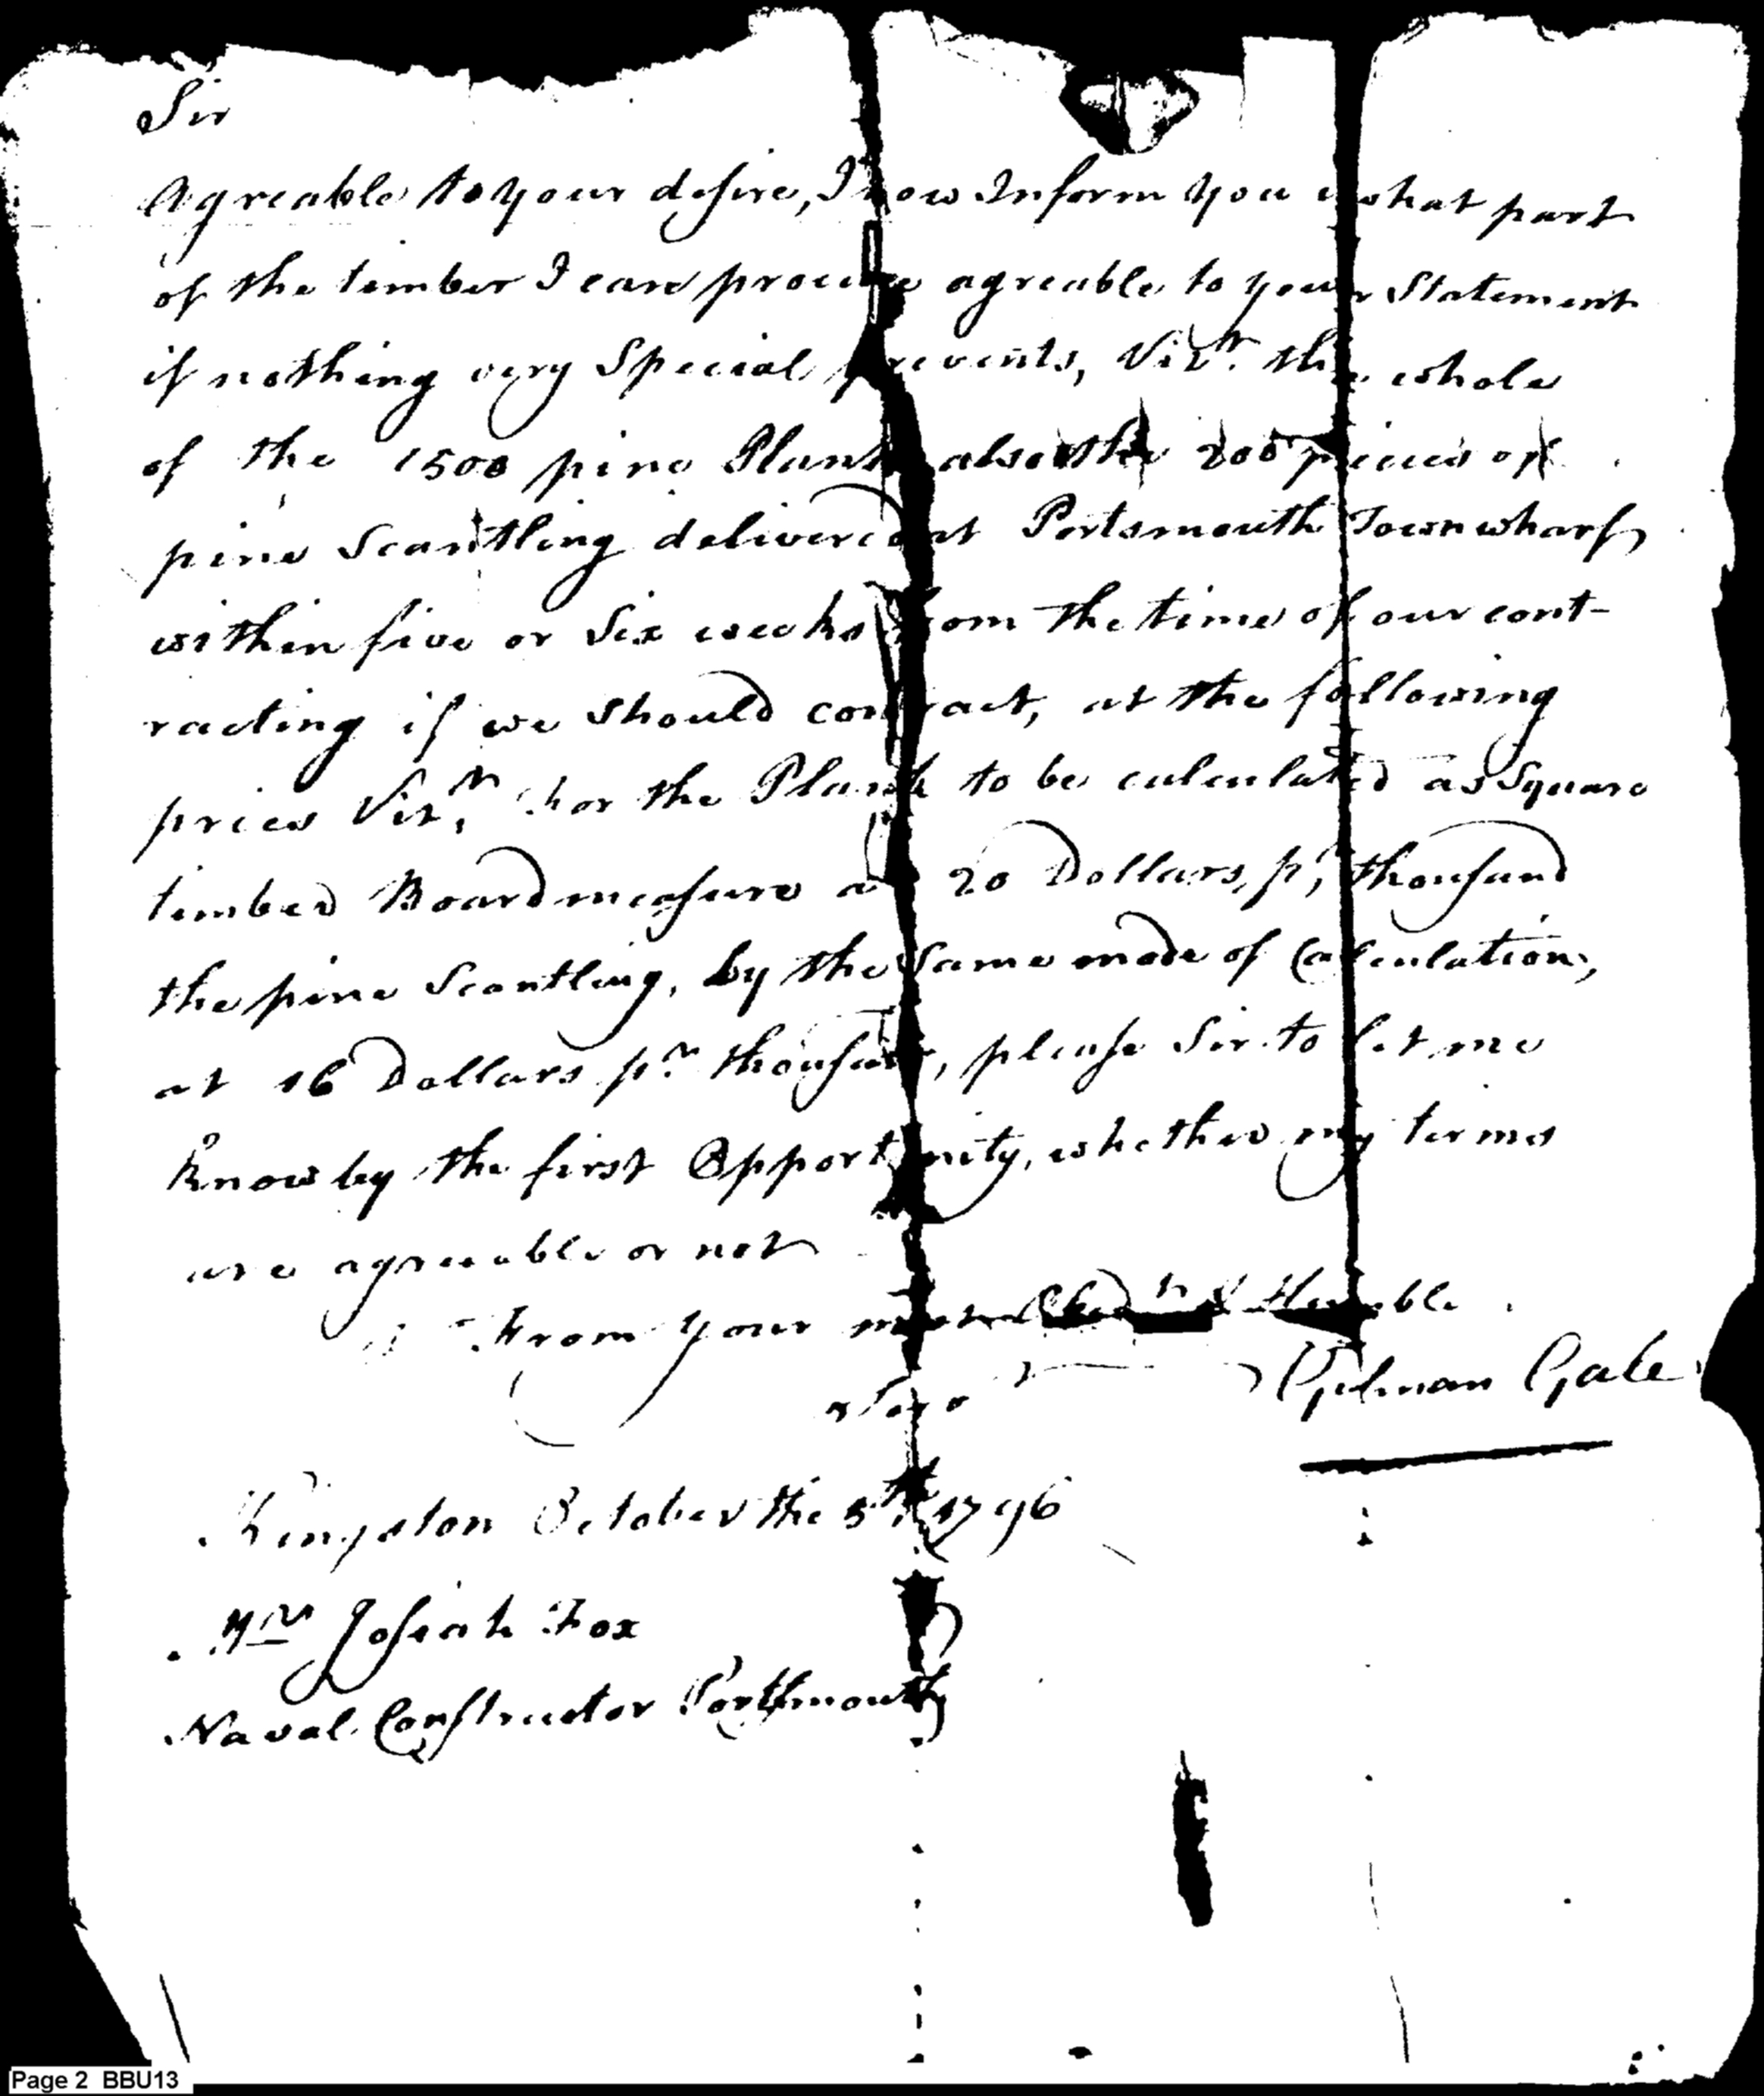 Sir
Agreable to your desire, I now Inform you what part
of the timber I can procure agreable to your Statement
if nothing very Special prevents, Vizt. the whole
of the 1500 pine Plank also the 200 pieces of
pine Scantling delivered at Portsmouth Town wharf
within five or Six weeks from the time of our cont-
racting if we should contract, at the following
prices Vizt, for the Plank to be calculated as Square
timber Board measure at 20 Dollars, pr, thousand
the pine Scantling, by the Same mode of Calculation,
at 16 Dollars pr. thousand, please Sir to let me
know by the first Opportunity, whether my terms
are agreeable or not
From your most Obedt. & Humble
Gilman Gale
Kingston October the 5th, 1796
Mr Josiah Fox
Naval Constructor Portsmouth
Page 2 BBU13